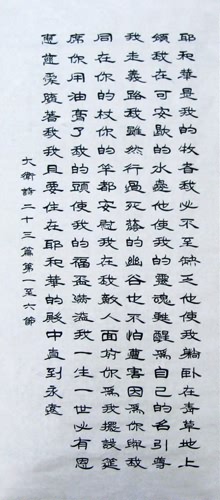 耶和華是我的牧者我必不至缺乏他使我躺臥在青草地上
領我在可安歇的水邊他使我的靈魂甦醒為自己的名引導
我走義路我雖然行過死蔭的幽谷也不怕遭害因為你與我
同在你的杖你的竿都安慰我在我敵人面前你為我擺設筵
席你用油膏了我的頭使我的福杯滿溢我一生一世必有恩
惠慈愛隨着我我且要住在耶和華的殿中直到永遠
大衛詩二十三篇第一至六節